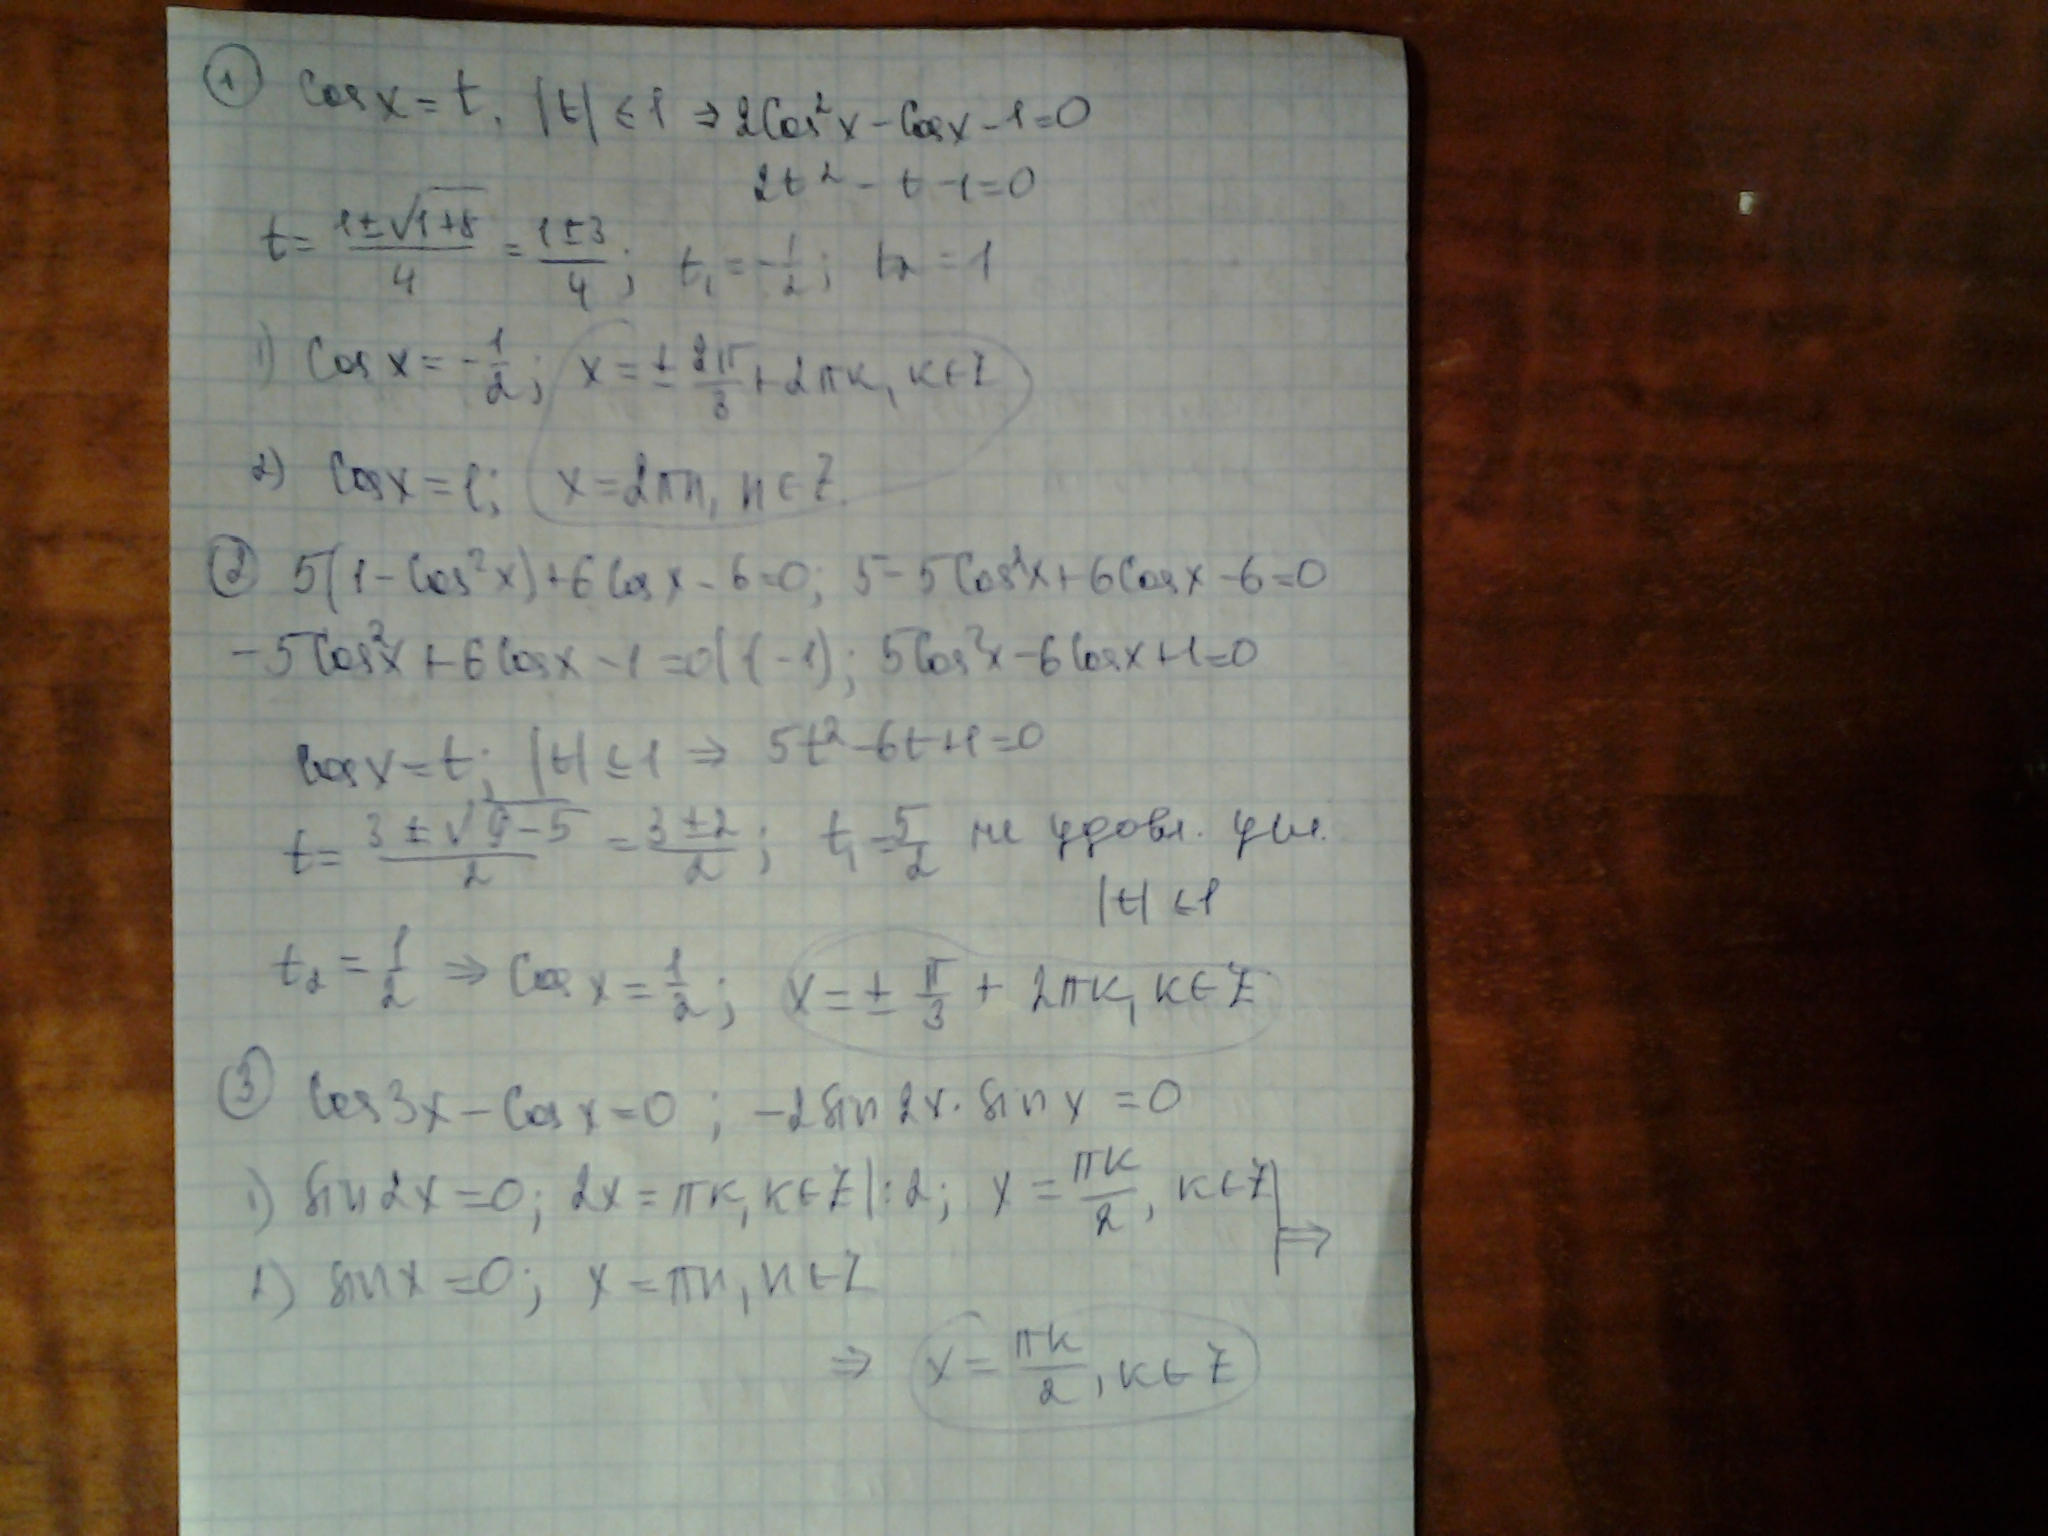 ① Cos x = t, |t| ≤ 1 ⇒ 2Cos²x - Cosx - 1 = 0
2t² - t - 1 = 0
t = (1 ± √(1+8))/4 = (1 ± 3)/4; t₁ = -1/2; t₂ = 1
1) Cos x = -1/2; x = ± 2π/3 + 2πк, к ∈ Z
2) Cosx = 1; x = 2πn, n ∈ Z
② 5(1 - Cos²x) + 6Cosx - 6 = 0; 5 - 5Cos²x + 6Cosx - 6 = 0
-5Cos²x + 6Cosx - 1 = 0 |(-1); 5Cos²x - 6Cosx + 1 = 0
Cosx = t; |t| ≤ 1 ⇒ 5t² - 6t + 1 = 0
t = (3 ± √(9-5))/2 = (3 ± 2)/2; t₁ = 5/2 не удовл. усл.
|t| ≤ 1
t₂ = 1/2 ⇒ Cos x = 1/2; x = ± π/3 + 2πк, к ∈ Z
③ Cos3x - Cosx = 0; -2sin2x · sinx = 0
1) sin2x = 0; 2x = πк, к ∈ Z |:2; x = πк/2, к ∈ Z | ⇒
2) sinx = 0; x = πn, n ∈ Z
⇒ x = πк/2, к ∈ Z